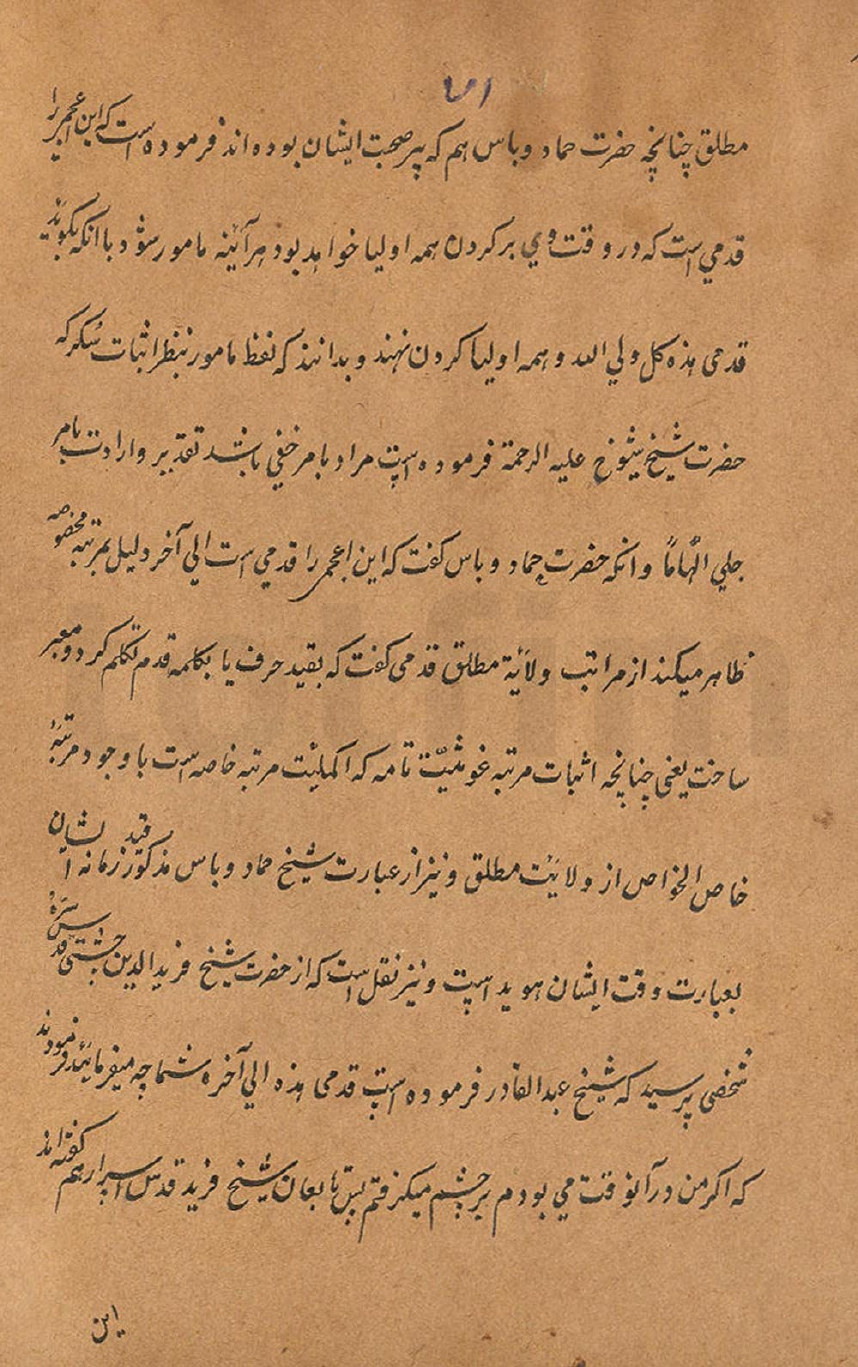 ۱۵۱
مطلق چنانچه حضرت حماد وباس هم که پیر صحبت ایشان بوده اند فرموده است که این اعجمی را
قدمی است که در وقت وی بر کردن همه اولیا خواهد بود هر آئینه مامور شود با انکه بکوید
قدمی هذه کل ولی الله و همه اولیا کردن نهند و بدانند که لفظ مامور بنظر اثبات سُکر که
حضرت شیخ شیوخ علیه الرحمة فرموده است مراد بامر خفی باشد تقدیر و ارادت بامر
جلی الهامًا وانکه حضرت حماد وباس کفت که این اعجمی را قدمی است الی آخر دلیل بمرتبه مخصوصه
ظاهر میکند از مراتب ولایة مطلق قدمی کفت که بقید حرف یا بکلمه قدم تکلم کرد و معبر
ساخت یعنی چنانچه اثبات مرتبه غوثیّت تامه که اکملیّت مرتبه خاصه است با وجود مرتبهٔ
خاص الخواص از ولایت مطلق و نیز از عبارت شیخ حماد وباس مذکور قید زمانه ایشان
بعبارت وقت ایشان هویدا است و نیز نقل است که از حضرت شیخ فریدالدین چشتی قدس سره
شخصی پرسید که شیخ عبدالقادر فرموده است قدمی هذه الی آخره شما چه میفرمائید فرمودند
که اکر من در آنوقت می بودم بر چشم میکرفتم پس تابعان شیخ فرید قدس اسرارهم کفته اند
این